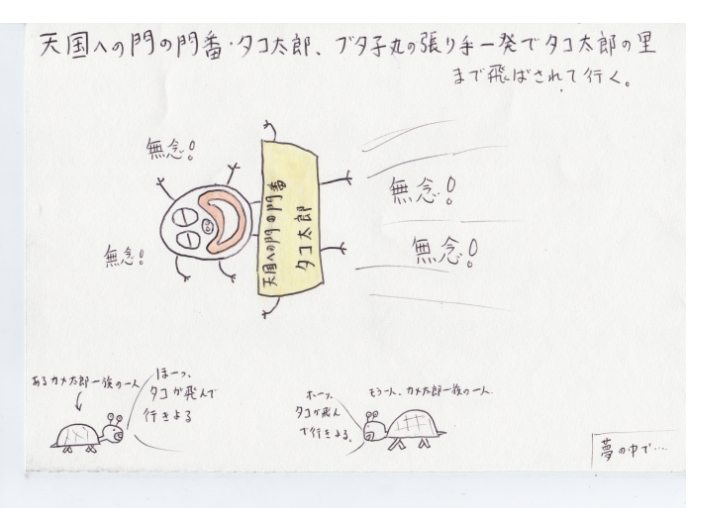 天国への門の門番・タコ太郎、ブタ子丸の張り手一発でタコ太郎の里
まで飛ばされて行く。
無念!
無念!
無念!
無念!
天国への門の門番
タコ太郎
あるカメ太郎一族の一人
ほーっ、
タコが飛んで
行きよる
もう一人、カメ太郎一族の一人。
ホーッ、
タコが飛ん
で行きよる。
夢の中で….